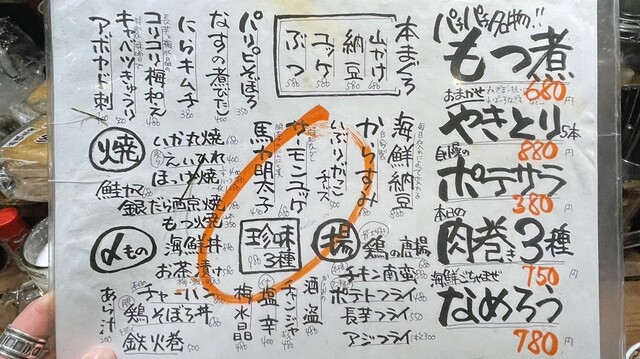 パチパチ名物!!
もつ煮
680円
おまかせ
やきとり5本
880円
自慢の
ポテサラ
380円
本日の
肉巻き3種
750円
海鮮ごちゃまぜ
なめろう
780円
本まぐろ
山かけ 580
納豆 580
ユッケ 580
ぶつ 580
パリピそぼろ 350
なすの煮びたし 400
にらキムチ 380
コリコリ梅和え
キャベツきゅうり
アボカド刺 450
海鮮納豆
からすみ
いぶりがっこチーズ
サーモンユッケ
馬刀明太子
珍味3種
980
酒盗
チャンジャ
塩辛
梅水晶
焼
いか丸焼
えいひれ
ほっけ焼
鮭かま
銀だら西京焼
もつ焼
〆もの
海鮮丼
お茶漬け
チャーハン
鶏そぼろ丼
鉄火巻 500
あら汁 200
揚
鶏の唐揚
チキン南蛮
ポテトフライ
長芋フライ
アジフライ